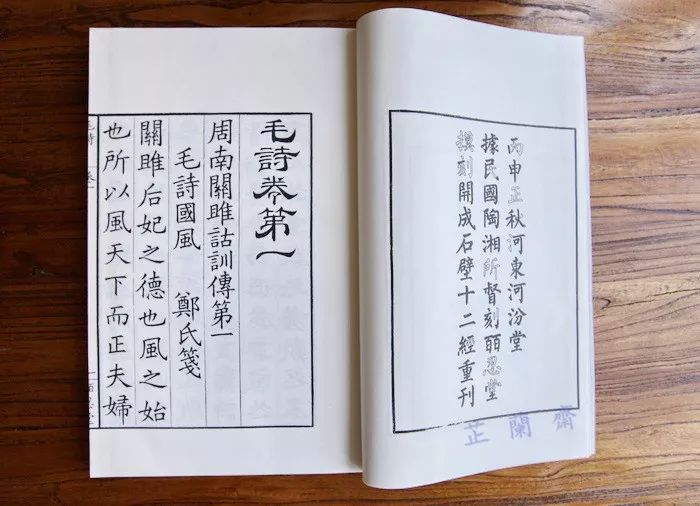 丙申正秋河東河汾堂
據民國陶湘所督刻皕忍堂
摸刻開成石壁十二經重刊
芷蘭齋
毛詩卷第一
周南關雎詁訓傳第一
毛詩國風 鄭氏箋
關雎后妃之德也風之始
也所以風天下而正夫婦
毛詩 卷一